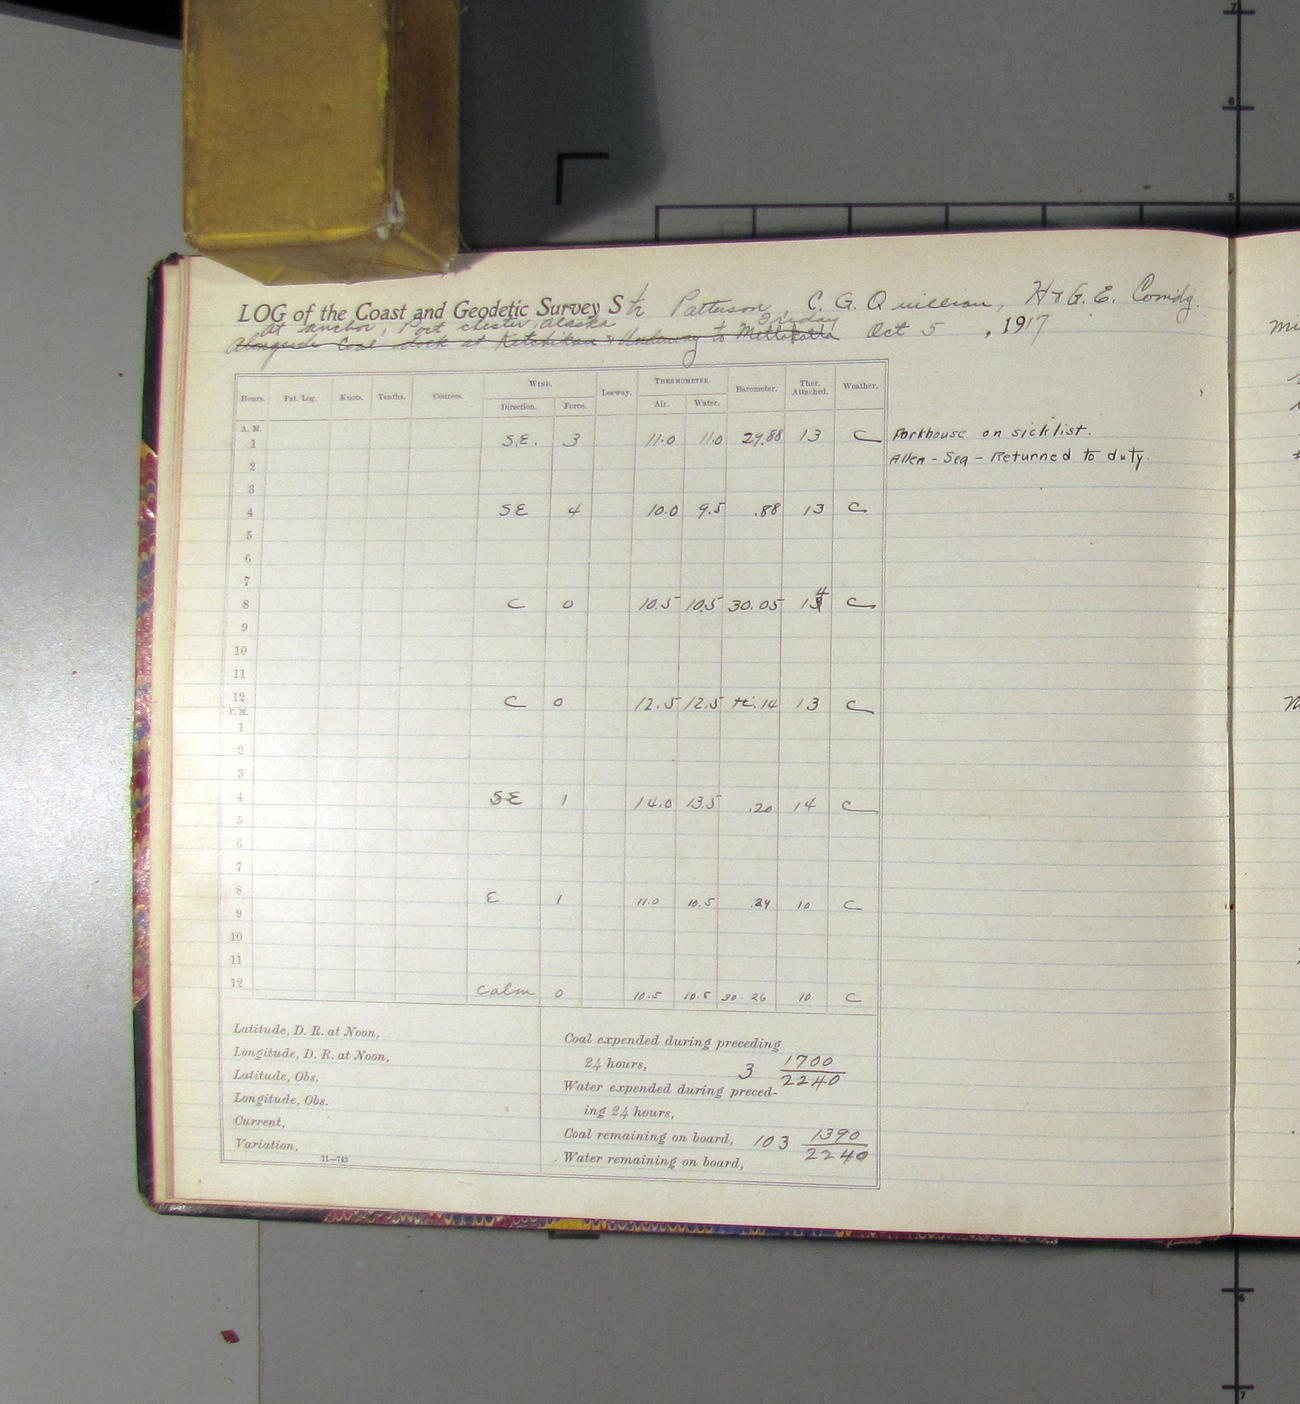 LOG of the Coast and Geodetic Survey Str Patterson C. G. Quillian, H & G. E. Comdg.
At anchor, Port Chester, Alaska Friday
Alongside Coal dock at Ketchikan & Underway to Metlakatla Oct 5, 1917
Hours. Pat. Log. Knots. Tenths. Courses. WIND. Leeway. THERMOMETER. Barometer. Ther. Attached. Weather.
Direction. Force. Air. Water.
A. M.
1 S.E. 3 11.0 11.0 29.88 13 C Parkhouse on sicklist.
2 Allen - Sea - Returned to duty.
3
4 SE 4 10.0 9.5 .88 13 C
5
6
7
8 C 0 10.5 10.5 30.05 14 C
9
10
11
12 C 0 12.5 12.5 .14 13 C
P. M.
1
2
3
4 SE 1 14.0 13.5 .20 14 C
5
6
7
8 E 1 11.0 10.5 .24 10 C
9
10
11
12 Calm 0 10.5 10.5 30.26 10 C
Latitude, D. R. at Noon,
Longitude, D. R. at Noon,
Latitude, Obs.
Longitude, Obs.
Current,
Variation,
11—743
Coal expended during preceding
24 hours, 3 1700/2240
Water expended during preced-
ing 24 hours,
Coal remaining on board, 103 1390/2240
Water remaining on board,